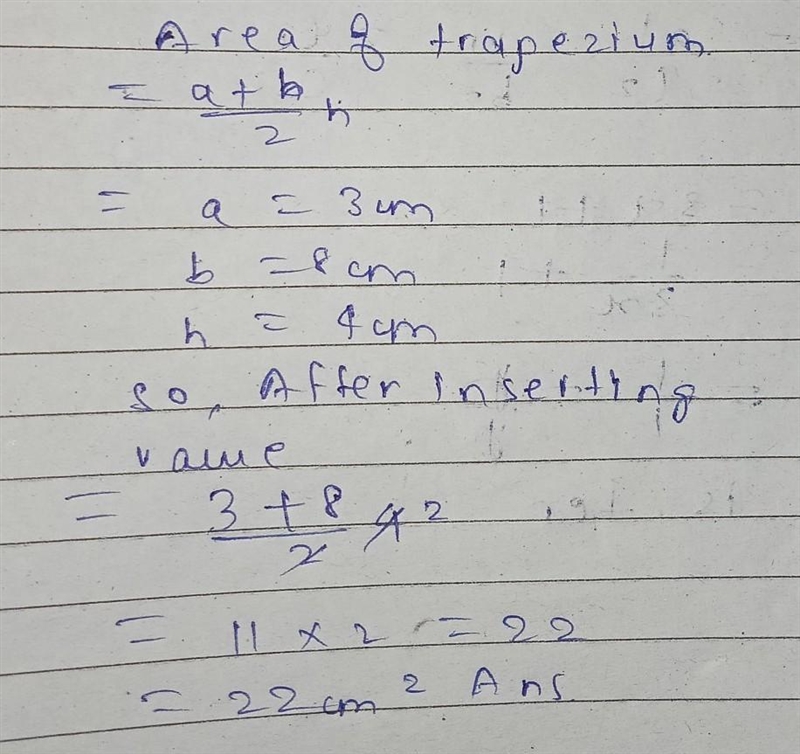 Area of trapezium
= a + b / 2 h
= a = 3 cm
b = 8 cm
h = 4 cm
so, After inserting
value
= 3 + 8 / 2 4 2
= 11 × 2 = 22
= 22 cm² Ans